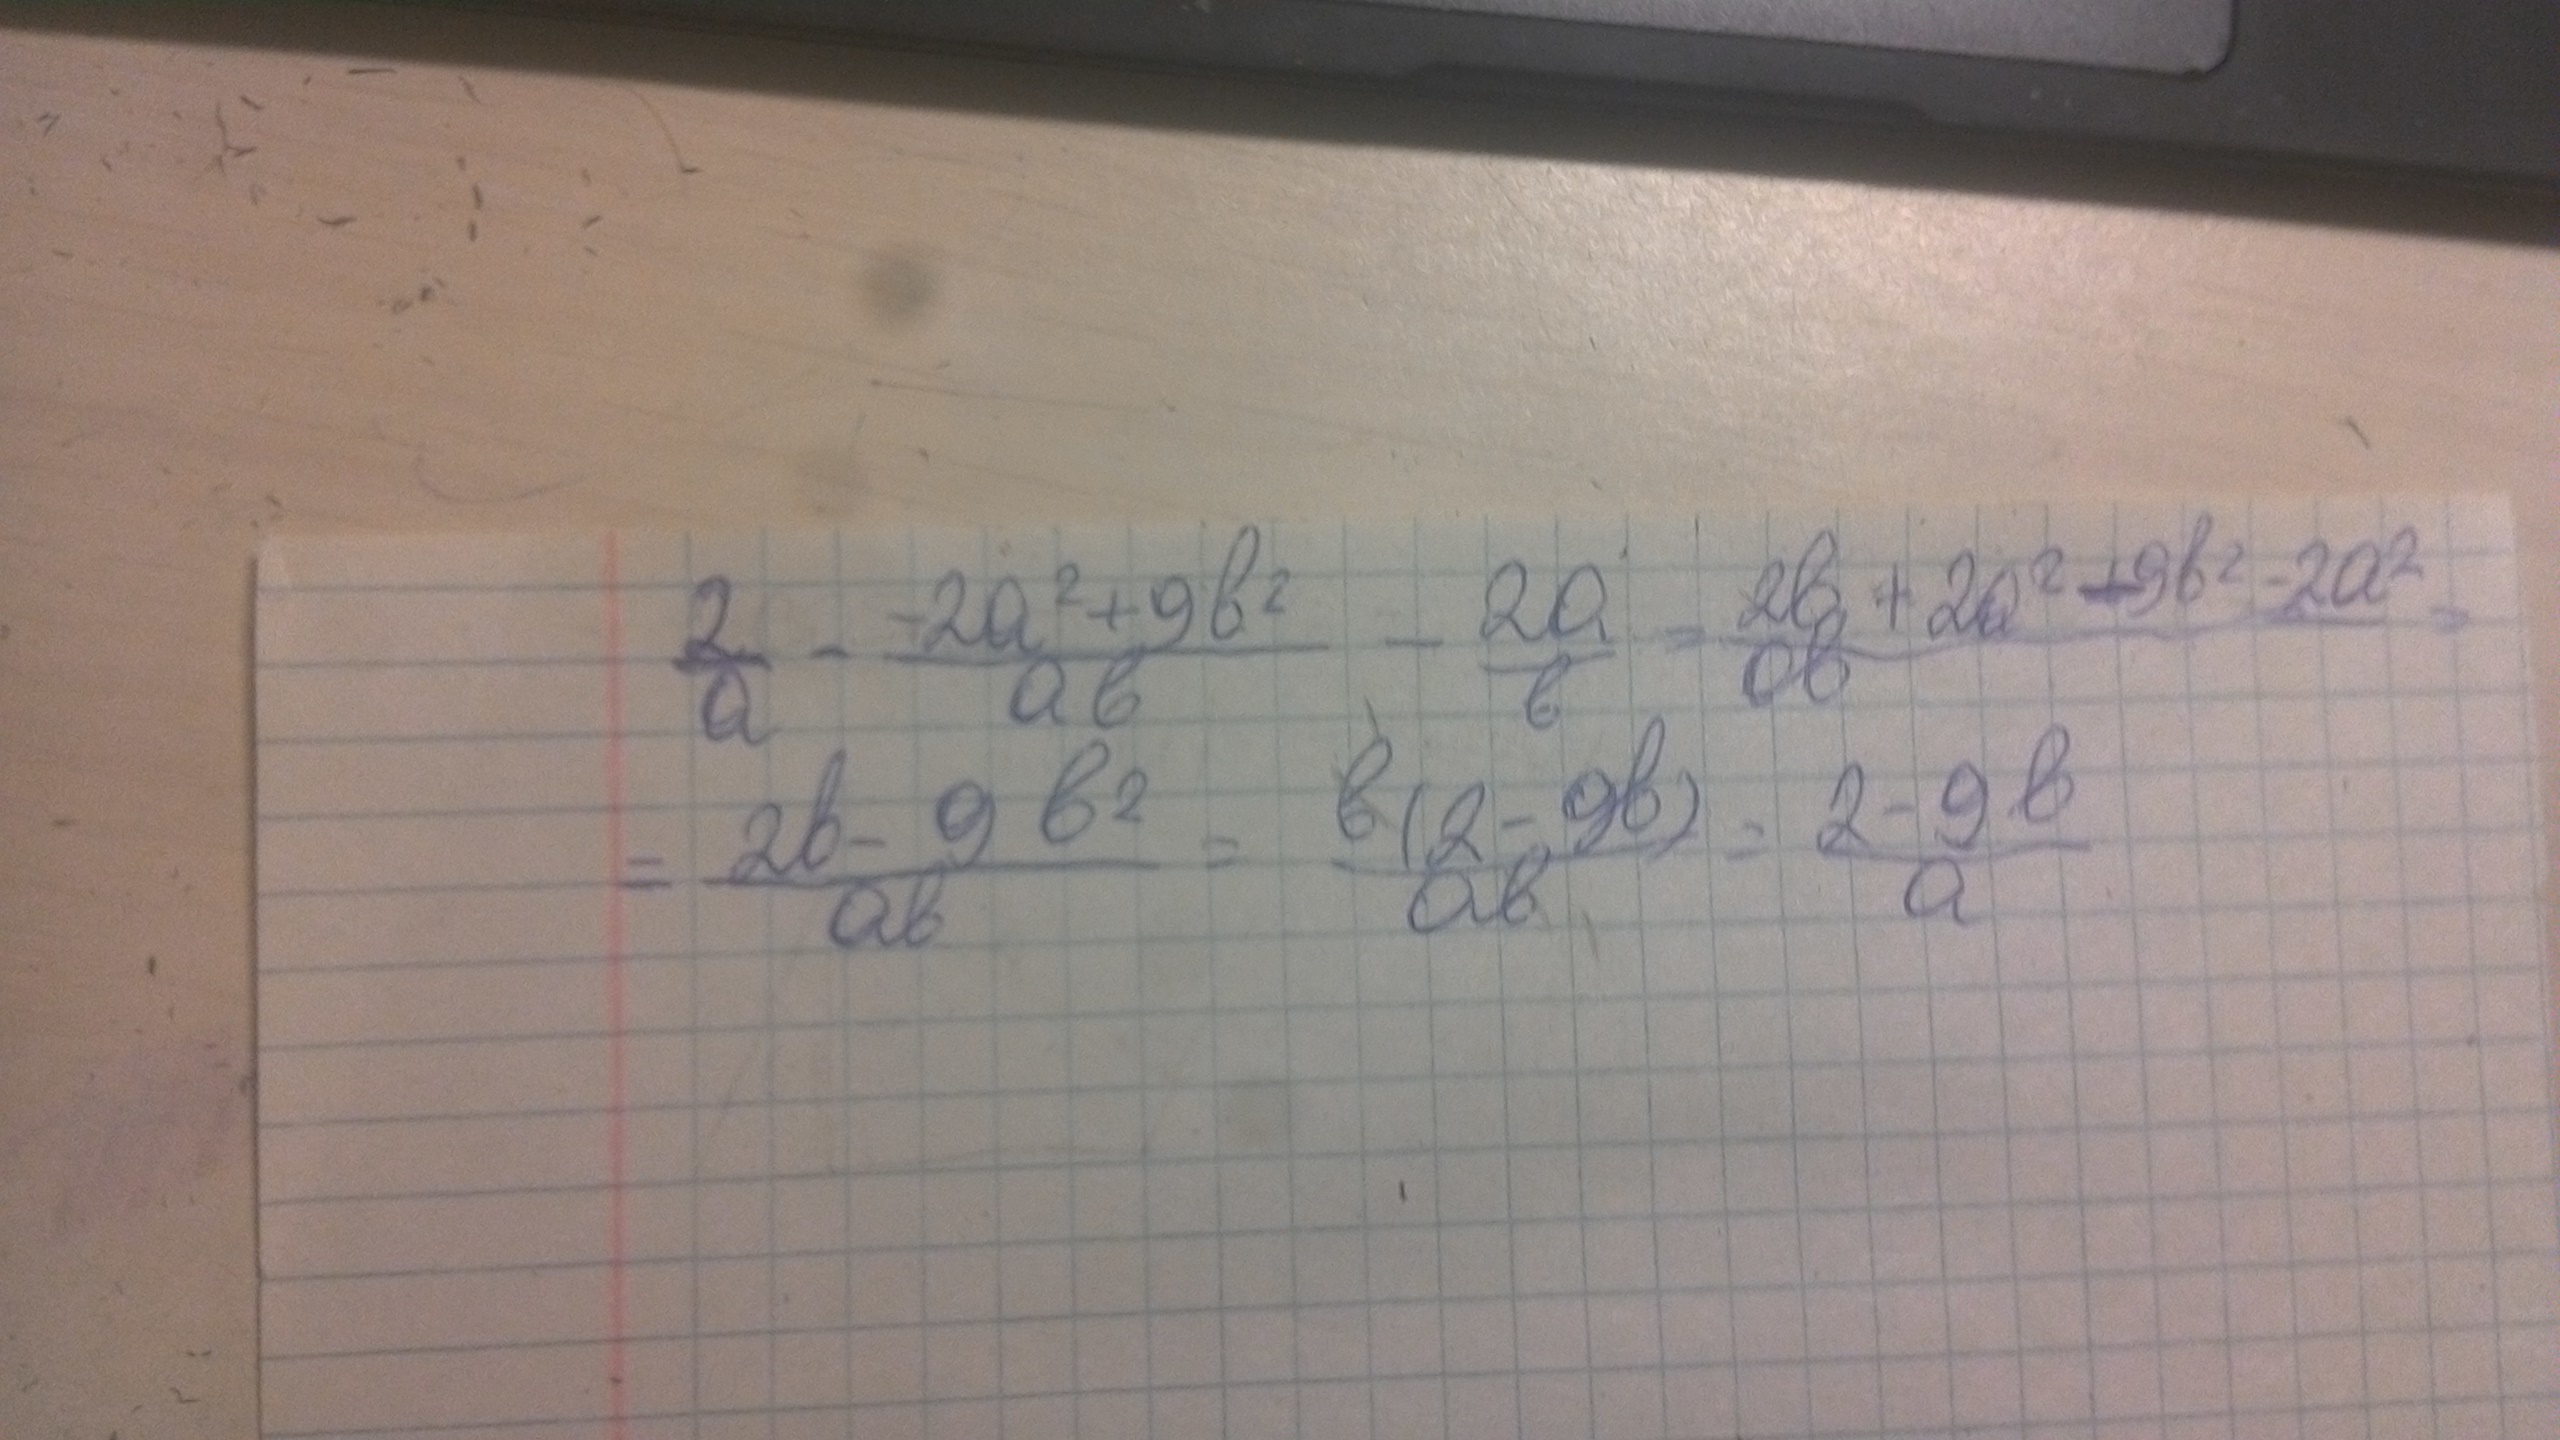 2/a - (-2a²+9b²)/(ab) - 2a/b = (2b+2a²-9b²-2a²)/(ab) =
= (2b-9b²)/(ab) = b(2-9b)/(ab) = (2-9b)/a